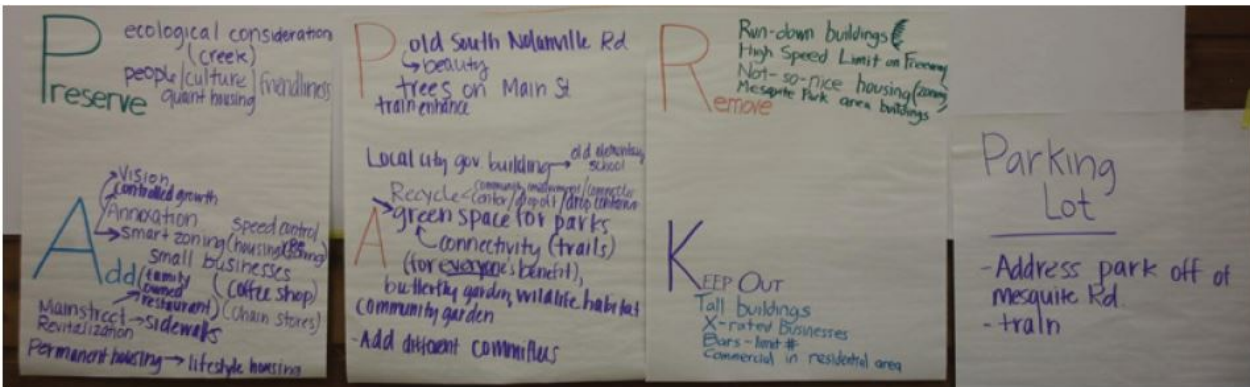 Preserve
ecological consideration
(creek)
people/culture/friendliness
quant housing
Add
Vision
controlled growth
Annoxation
smart zoning (housing)
Speed control
small businesses
(family owned restaurant)
(coffee shop)
(chain stores)
Mainstreet → sidewalks
Revitalization
Permanent housing → lifestyle housing
P
old South Nolanville Rd.
↳ beauty
trees on Main St
train enhance
A
Local city gov building → old elementary school
Recycle
green space for parks
connectivity (trails)
(for everyone's benefit),
butterfly garden, wildlife habitat
community garden
- Add different committees
Remove
Run-down buildings
High Speed Limit on Freeway
Not-so-nice housing (zoning)
Mesquite Park area buildings
KEEP OUT
Tall buildings
X-rated Businesses
Bars - limit #
Commercial in residential area
Parking
Lot
- Address park off of
mesquite Rd.
- train